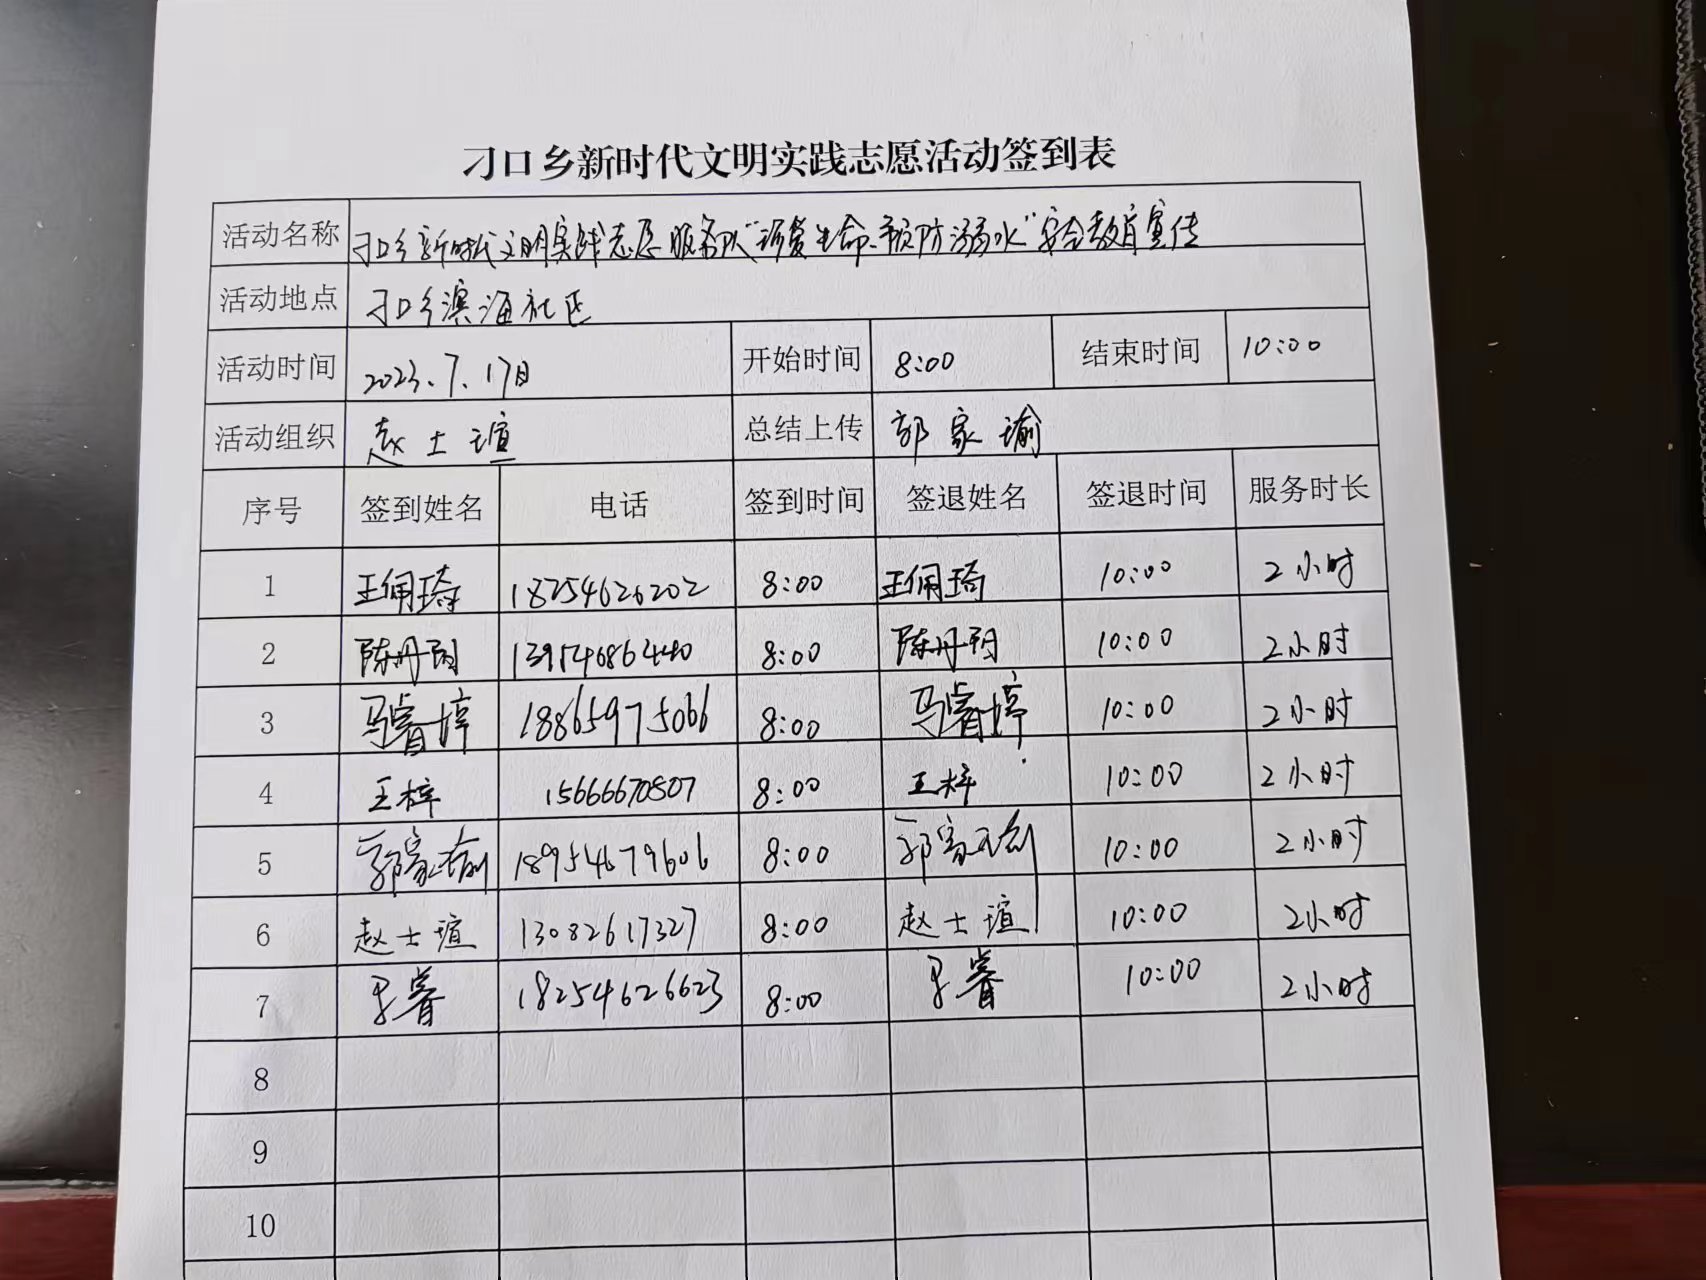 刁口乡新时代文明实践志愿活动签到表
活动名称 刁口乡新时代文明实践志愿服务队“珍爱生命、预防溺水”安全教育宣传
活动地点 刁口乡滨海社区
活动时间 2023.7.17日 开始时间 8:00 结束时间 10:00
活动组织 赵士瑄 总结上传 郭家瑜
序号 签到姓名 电话 签到时间 签退姓名 签退时间 服务时长
1 王佩琦 18254626202 8:00 王佩琦 10:00 2小时
2 陈丹阳 13954686440 8:00 陈丹阳 10:00 2小时
3 马睿婷 18865975066 8:00 马睿婷 10:00 2小时
4 王梓 15666670807 8:00 王梓 10:00 2小时
5 郭家瑜 18954679606 8:00 郭家瑜 10:00 2小时
6 赵士瑄 13082617327 8:00 赵士瑄 10:00 2小时
7 睿 18254626623 8:00 睿 10:00 2小时
8
9
10